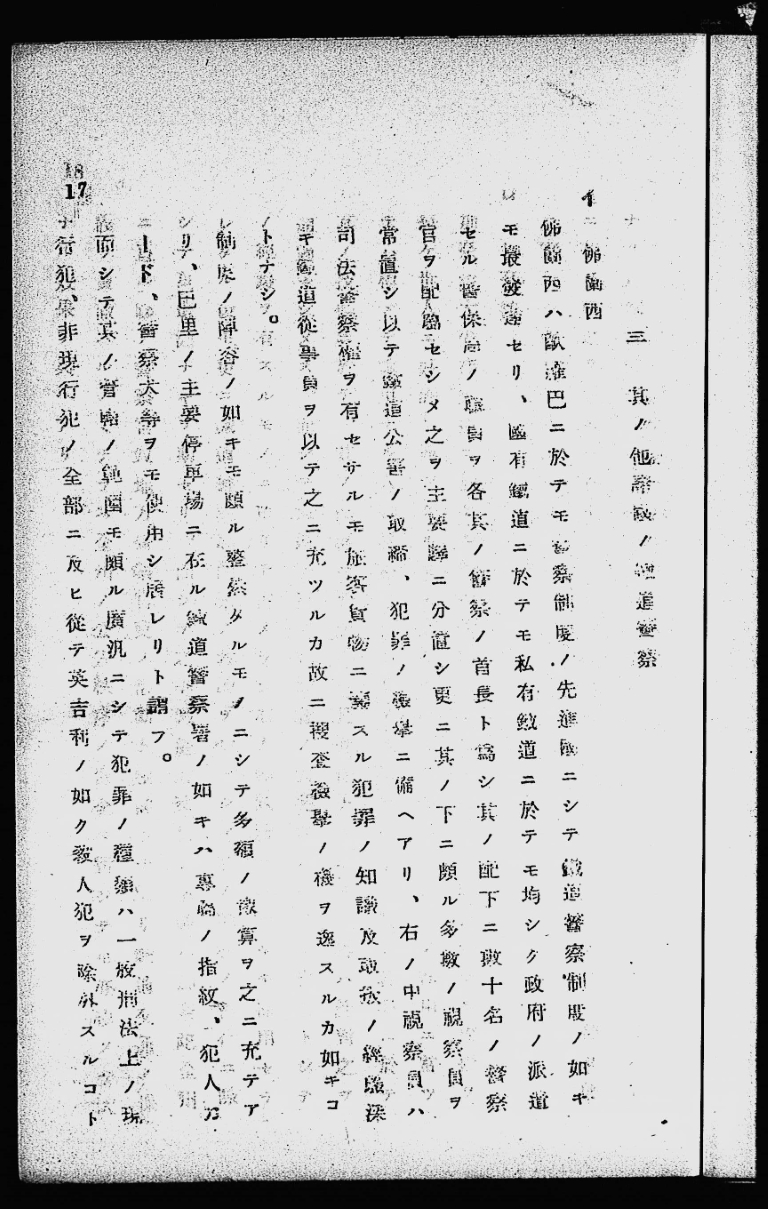 三 其ノ他諸國ノ鐵道警察
イ 佛蘭西
佛蘭西ハ歐羅巴ニ於テモ警察制度ノ先進國ニシテ鐵道警察制度ノ如キ
モ最發達セリ、國有鐵道ニ於テモ私有鐵道ニ於テモ均シク政府ノ派遣
セル警保局ノ職員ヲ各其ノ警察ノ首長ト爲シ其ノ配下ニ數十名ノ警察
官ヲ配屬セシメ之ヲ主要驛ニ分置シ更ニ其ノ下ニ頗ル多數ノ視察員ヲ
常置シ以テ鐵道公害ノ取締、犯罪ノ檢擧ニ備ヘアリ、右ノ中視察員ハ
司法警察權ヲ有セサルモ旅客貨物ニ關スル犯罪ノ知識及取扱ノ經驗深
キ鐵道從事員ヲ以テ之ニ充ツルカ故ニ搜查檢擧ノ機ヲ逸スルカ如キコ
トナシ。
制度ノ陣容ノ如キモ頗ル整然タルモノニシテ多額ノ豫算ヲ之ニ充テア
リ、巴里ノ主要停車場ニ在ル鐵道警察署ノ如キハ專屬ノ指紋、犯人カ
ード、警察犬等ヲモ使用シ居レリト謂フ。
而シテ其ノ管轄ノ範圍モ頗ル廣汎ニシテ犯罪ノ種類ハ一般刑法上ノ現
行犯、非現行犯ノ全部ニ及ヒ從テ英吉利ノ如ク殺人犯ヲ除外スルコト
17